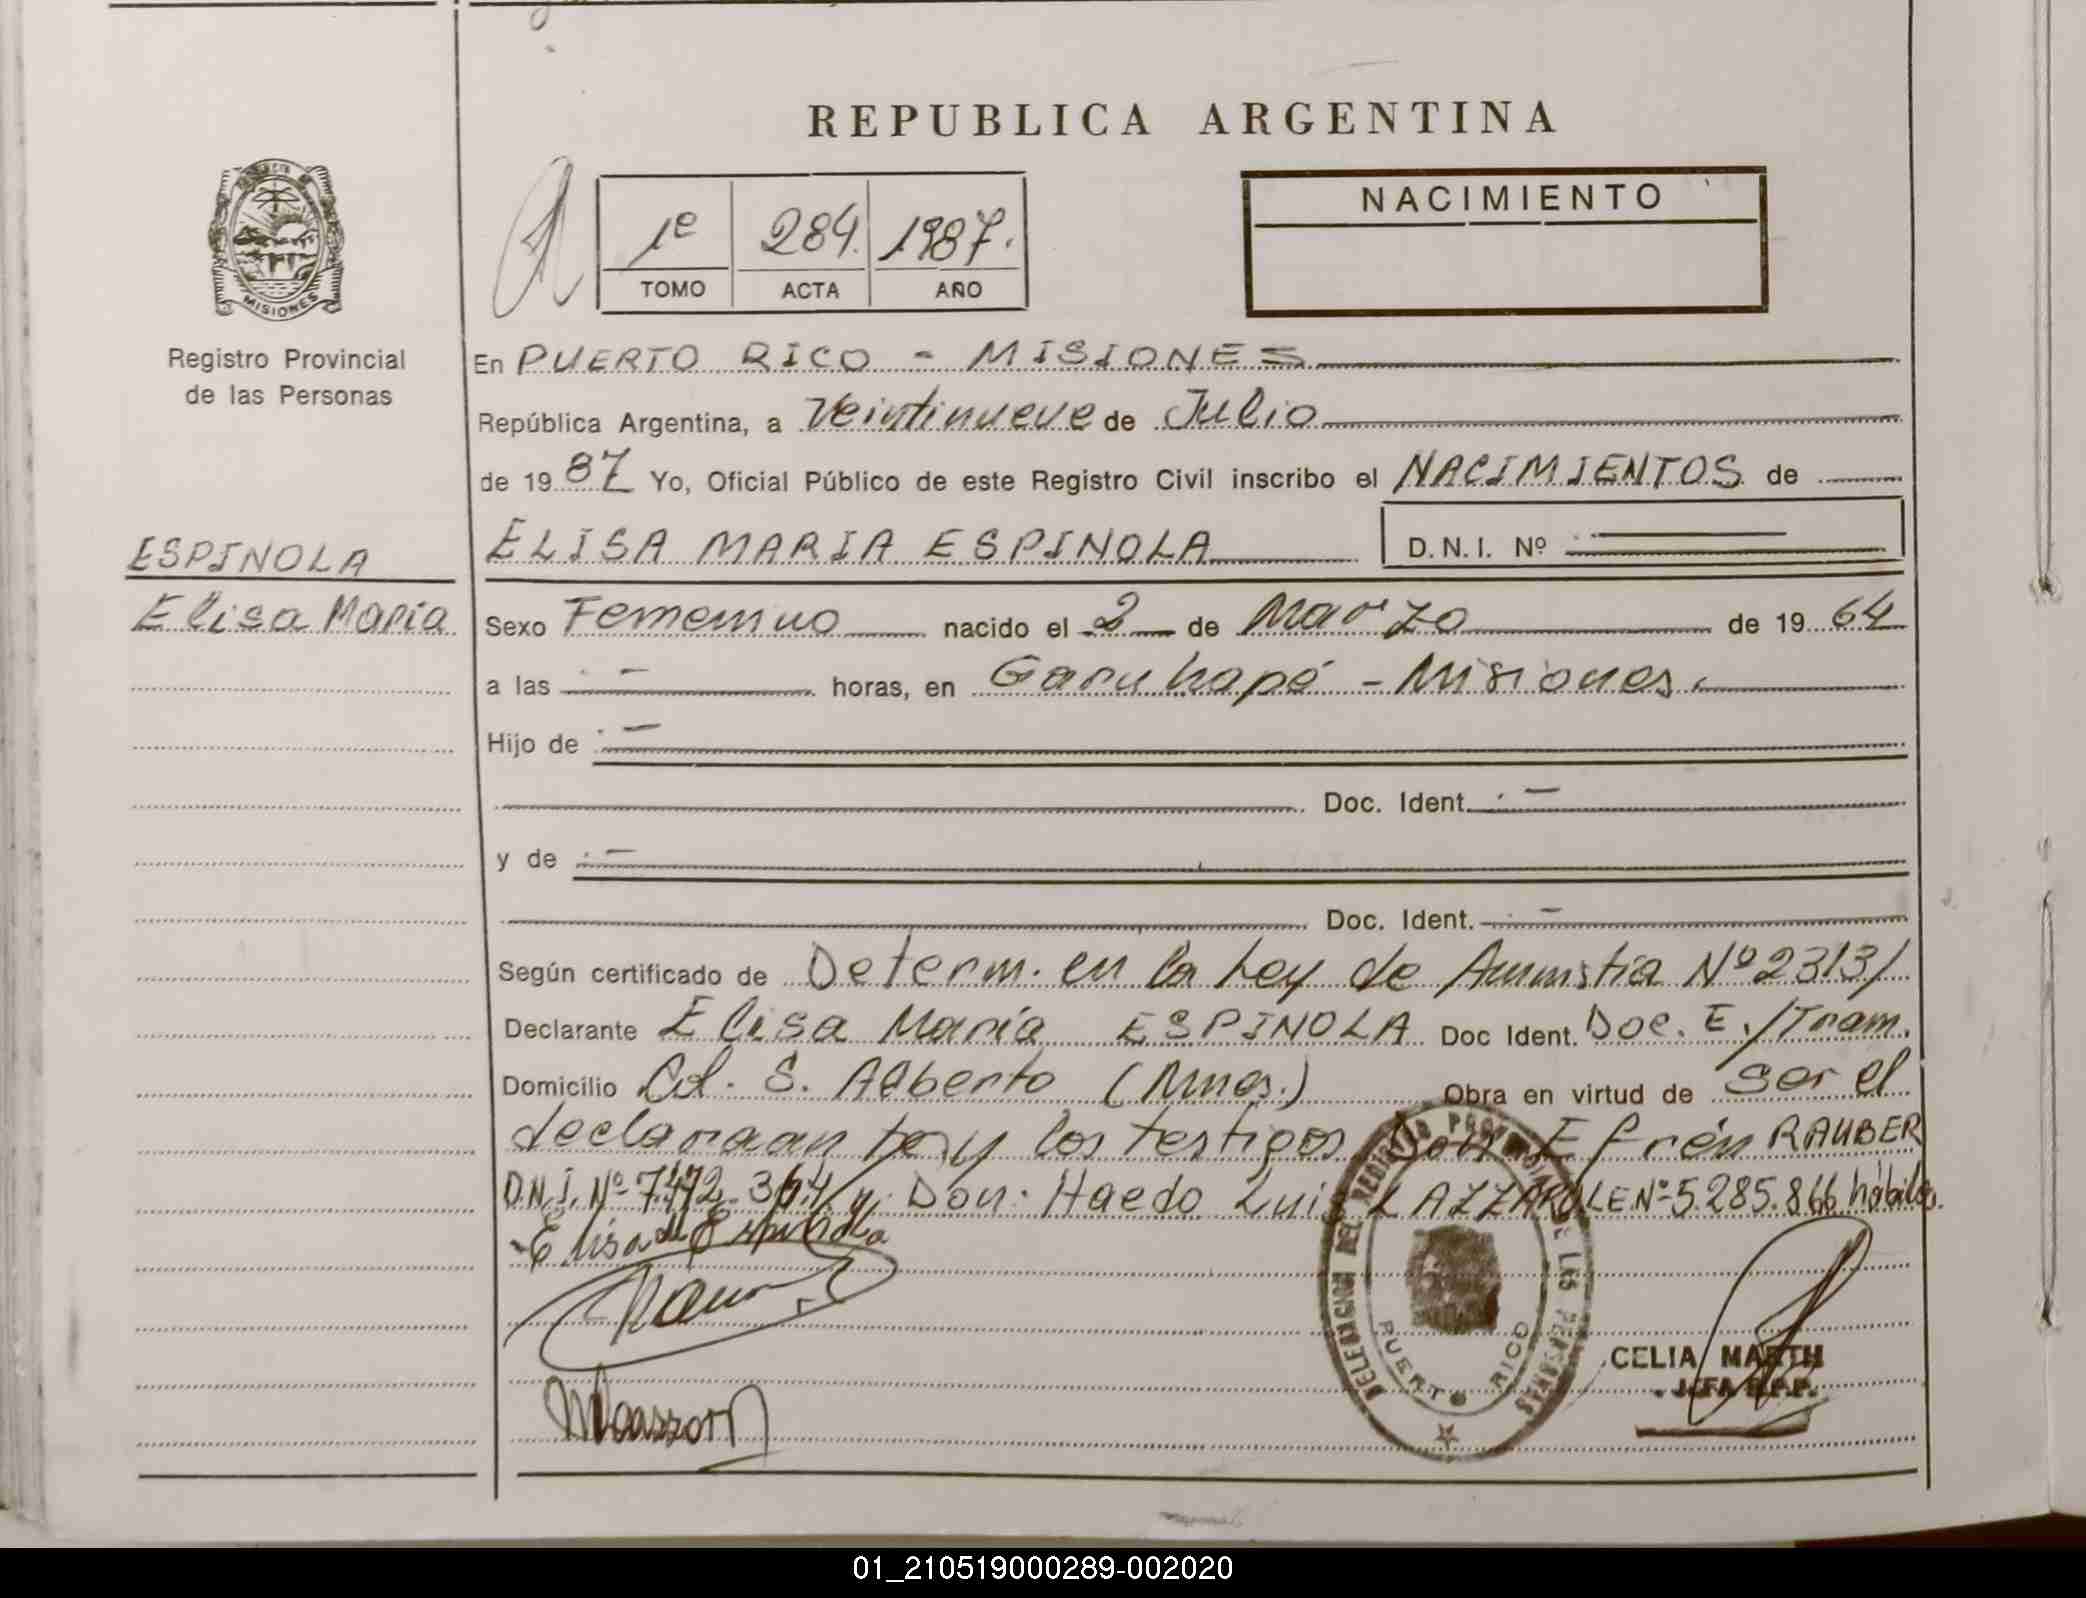 REPUBLICA ARGENTINA
1º 284. 1987.
TOMO ACTA AÑO
NACIMIENTO
MISIONES
Registro Provincial
de las Personas
En PUERTO RICO - MISIONES
República Argentina, a Veintinueve de Julio
de 1987 Yo, Oficial Público de este Registro Civil inscribo el NACIMIENTOS de
ELISA MARIA ESPINOLA D.N.I. Nº
ESPINOLA
Elisa María
Sexo Femenino nacido el 2 de Marzo de 1964
a las - horas, en Garuhapé - Misiones.
Hijo de -
Doc. Ident. -
y de -
Doc. Ident. -
Según certificado de Determ. en la Ley de Amnistia Nº 2313/
Declarante Elisa María ESPINOLA Doc Ident. Doc. E./Tram.
Domicilio Col. S. Alberto (Mnes.) Obra en virtud de ser el
declaraante y los testigos Don Efrén RAUBER
D.N.I. Nº 7.472.364 y Don: Haedo Luis LAZZARO LE Nº 5.285.866 hábiles.
Elisa de Espindola
DELEGACION DEL REGISTRO PROVINCIAL DE LAS PERSONAS
PUERTO RICO
CELIA MARTH
JEFA R.P.P.
01_210519000289-002020